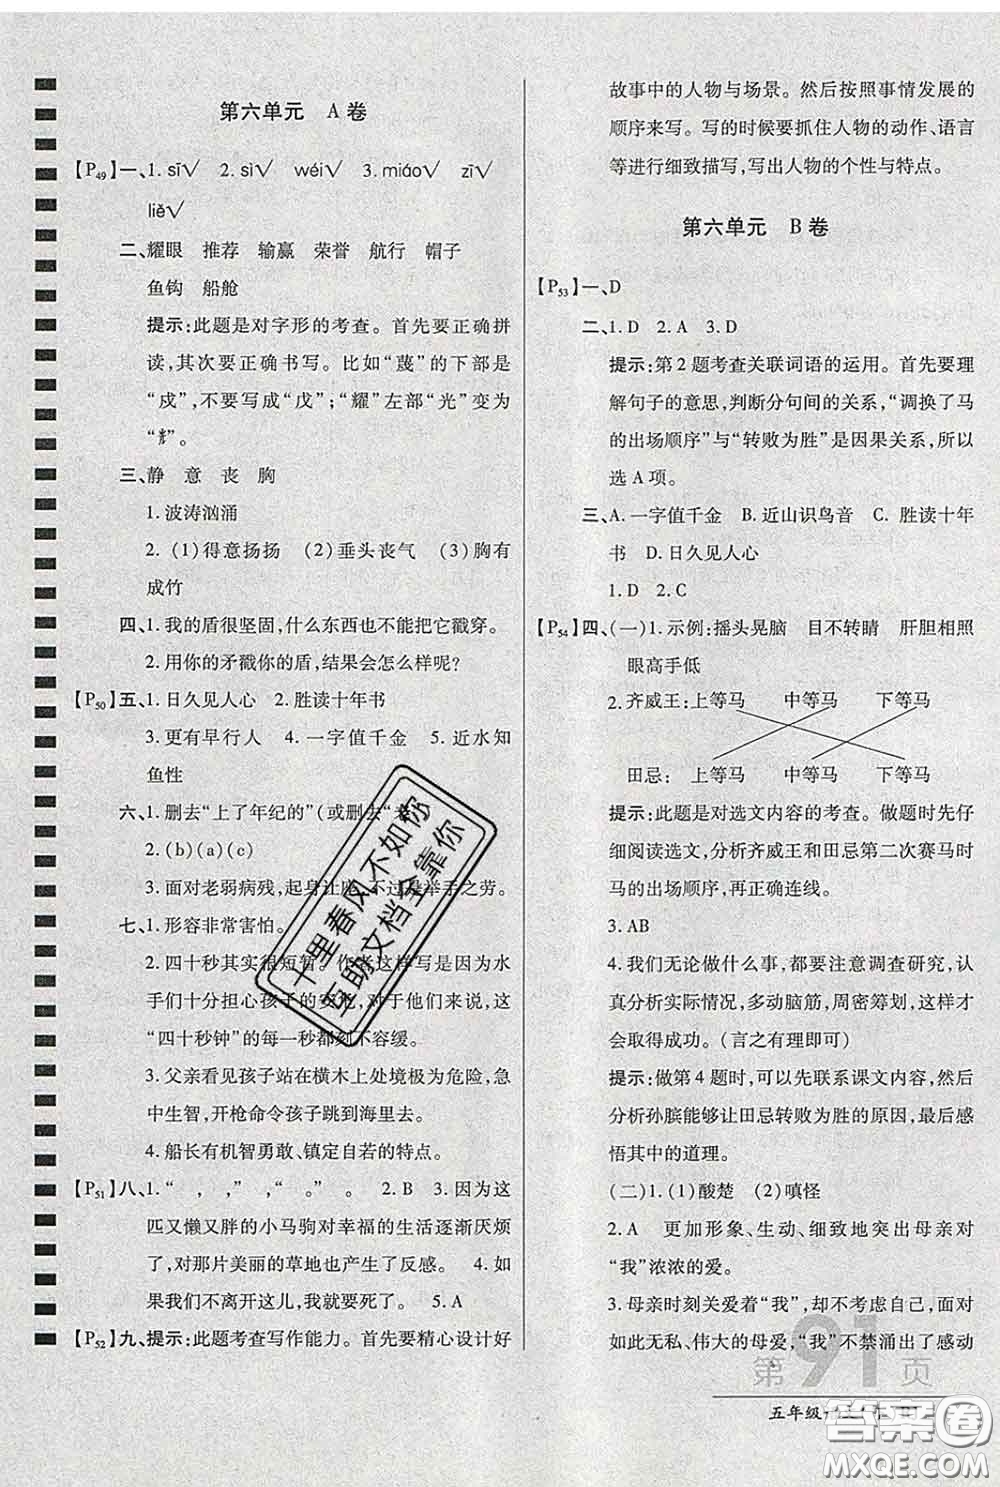 第六单元　A 卷
【P49】一、1. sī√　2. sì√　wéi√　3. miáo√　zī√
liě√
二、耀眼　推荐　输赢　荣誉　航行　帽子
鱼钩　船舱
提示:此题是对字形的考查。首先要正确拼
读,其次要正确书写。比如“蔑”的下部是
“戍”,不要写成“戊”;“耀”左部“光”变为
三、静　意　丧　胸
1. 波涛汹涌
2. (1)得意扬扬　(2)垂头丧气　(3)胸有
成竹
四、1. 我的盾很坚固,什么东西也不能把它戳穿。
2. 用你的矛戳你的盾,结果会怎么样呢?
【P50】五、1. 日久见人心　2. 胜读十年书
3. 更有早行人　4. 一字值千金　5. 近水知
鱼性
六、1. 删去“上了年纪的”(或删去“老
2. (b)(a)(c)
3. 面对老弱病残,起身让座不过是举手之劳。
七、1. 形容非常害怕。
2. 四十秒其实很短暂。作者这样写是因为水
手们十分担心孩子的安危,对他们来说,这
“四十秒钟”的每一秒都刻不容缓。
3. 父亲看见孩子站在横木上处境极为危险,急
中生智,开枪命令孩子跳到海里去。
4. 船长有机智勇敢、镇定自若的特点。
【P51】八、1. “　，　，”　，“　。”　。　2. B　3. 因为这
匹又懒又胖的小马驹对幸福的生活逐渐厌烦
了,对那片美丽的草地也产生了反感。　4. 如
果我们不离开这儿,我就要死了。　5. A
【P52】九、提示:此题考查写作能力。首先要精心设计好
故事中的人物与场景。然后按照事情发展的
顺序来写。写的时候要抓住人物的动作、语言
等进行细致描写,写出人物的个性与特点。
第六单元　B 卷
【P53】一、D
二、1. D　2. A　3. D
提示:第 2 题考查关联词语的运用。首先要理
解句子的意思,判断分句间的关系,“调换了马
的出场顺序”与“转败为胜”是因果关系,所以
选 A 项。
三、A. 一字值千金　B. 近山识鸟音　C. 胜读十年
书　D. 日久见人心
1. D　2. C
【P54】四、(一)1. 示例:摇头晃脑　目不转睛　肝胆相照
眼高手低
2. 齐威王:上等马　中等马　下等马
田忌:　上等马　中等马　下等马
提示:此题是对选文内容的考查。做题时先仔
细阅读选文,分析齐威王和田忌第二次赛马时
马的出场顺序,再正确连线。
3. AB
4. 我们无论做什么事,都要注意调查研究,认
真分析实际情况,多动脑筋,周密筹划,这样才
会取得成功。(言之有理即可)
提示:做第 4 题时,可以先联系课文内容,然后
分析孙膑能够让田忌转败为胜的原因,最后感
悟其中的道理。
(二)1. (1)酸楚　(2)嗔怪
2. A　更加形象、生动、细致地突出母亲对
“我”浓浓的爱。
3. 母亲时刻关爱着“我”,却不考虑自己,面对
如此无私、伟大的母爱,“我”不禁涌出了感动
第91页
五年级
十里春风不如你
互助文档全靠你
答案卷
MXQE.COM